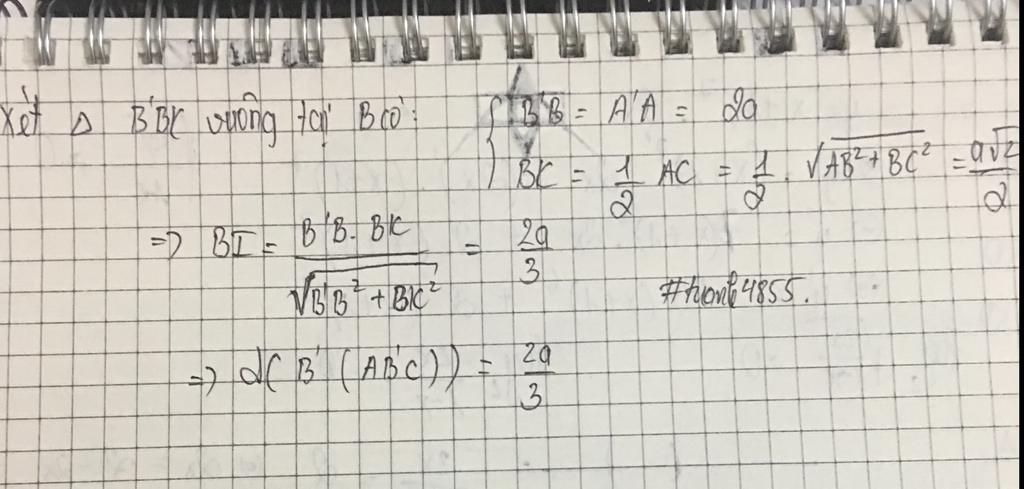 Xét Δ B'BK vuông tại B có: { B'B = A'A = 2a
BK = 1/2 AC = 1/2 . √(AB² + BC²) = a√2/2
=> BI = B'B . BK / √(B'B² + BK²) = 2a/3
=> d( B' (AB'C)) = 2a/3